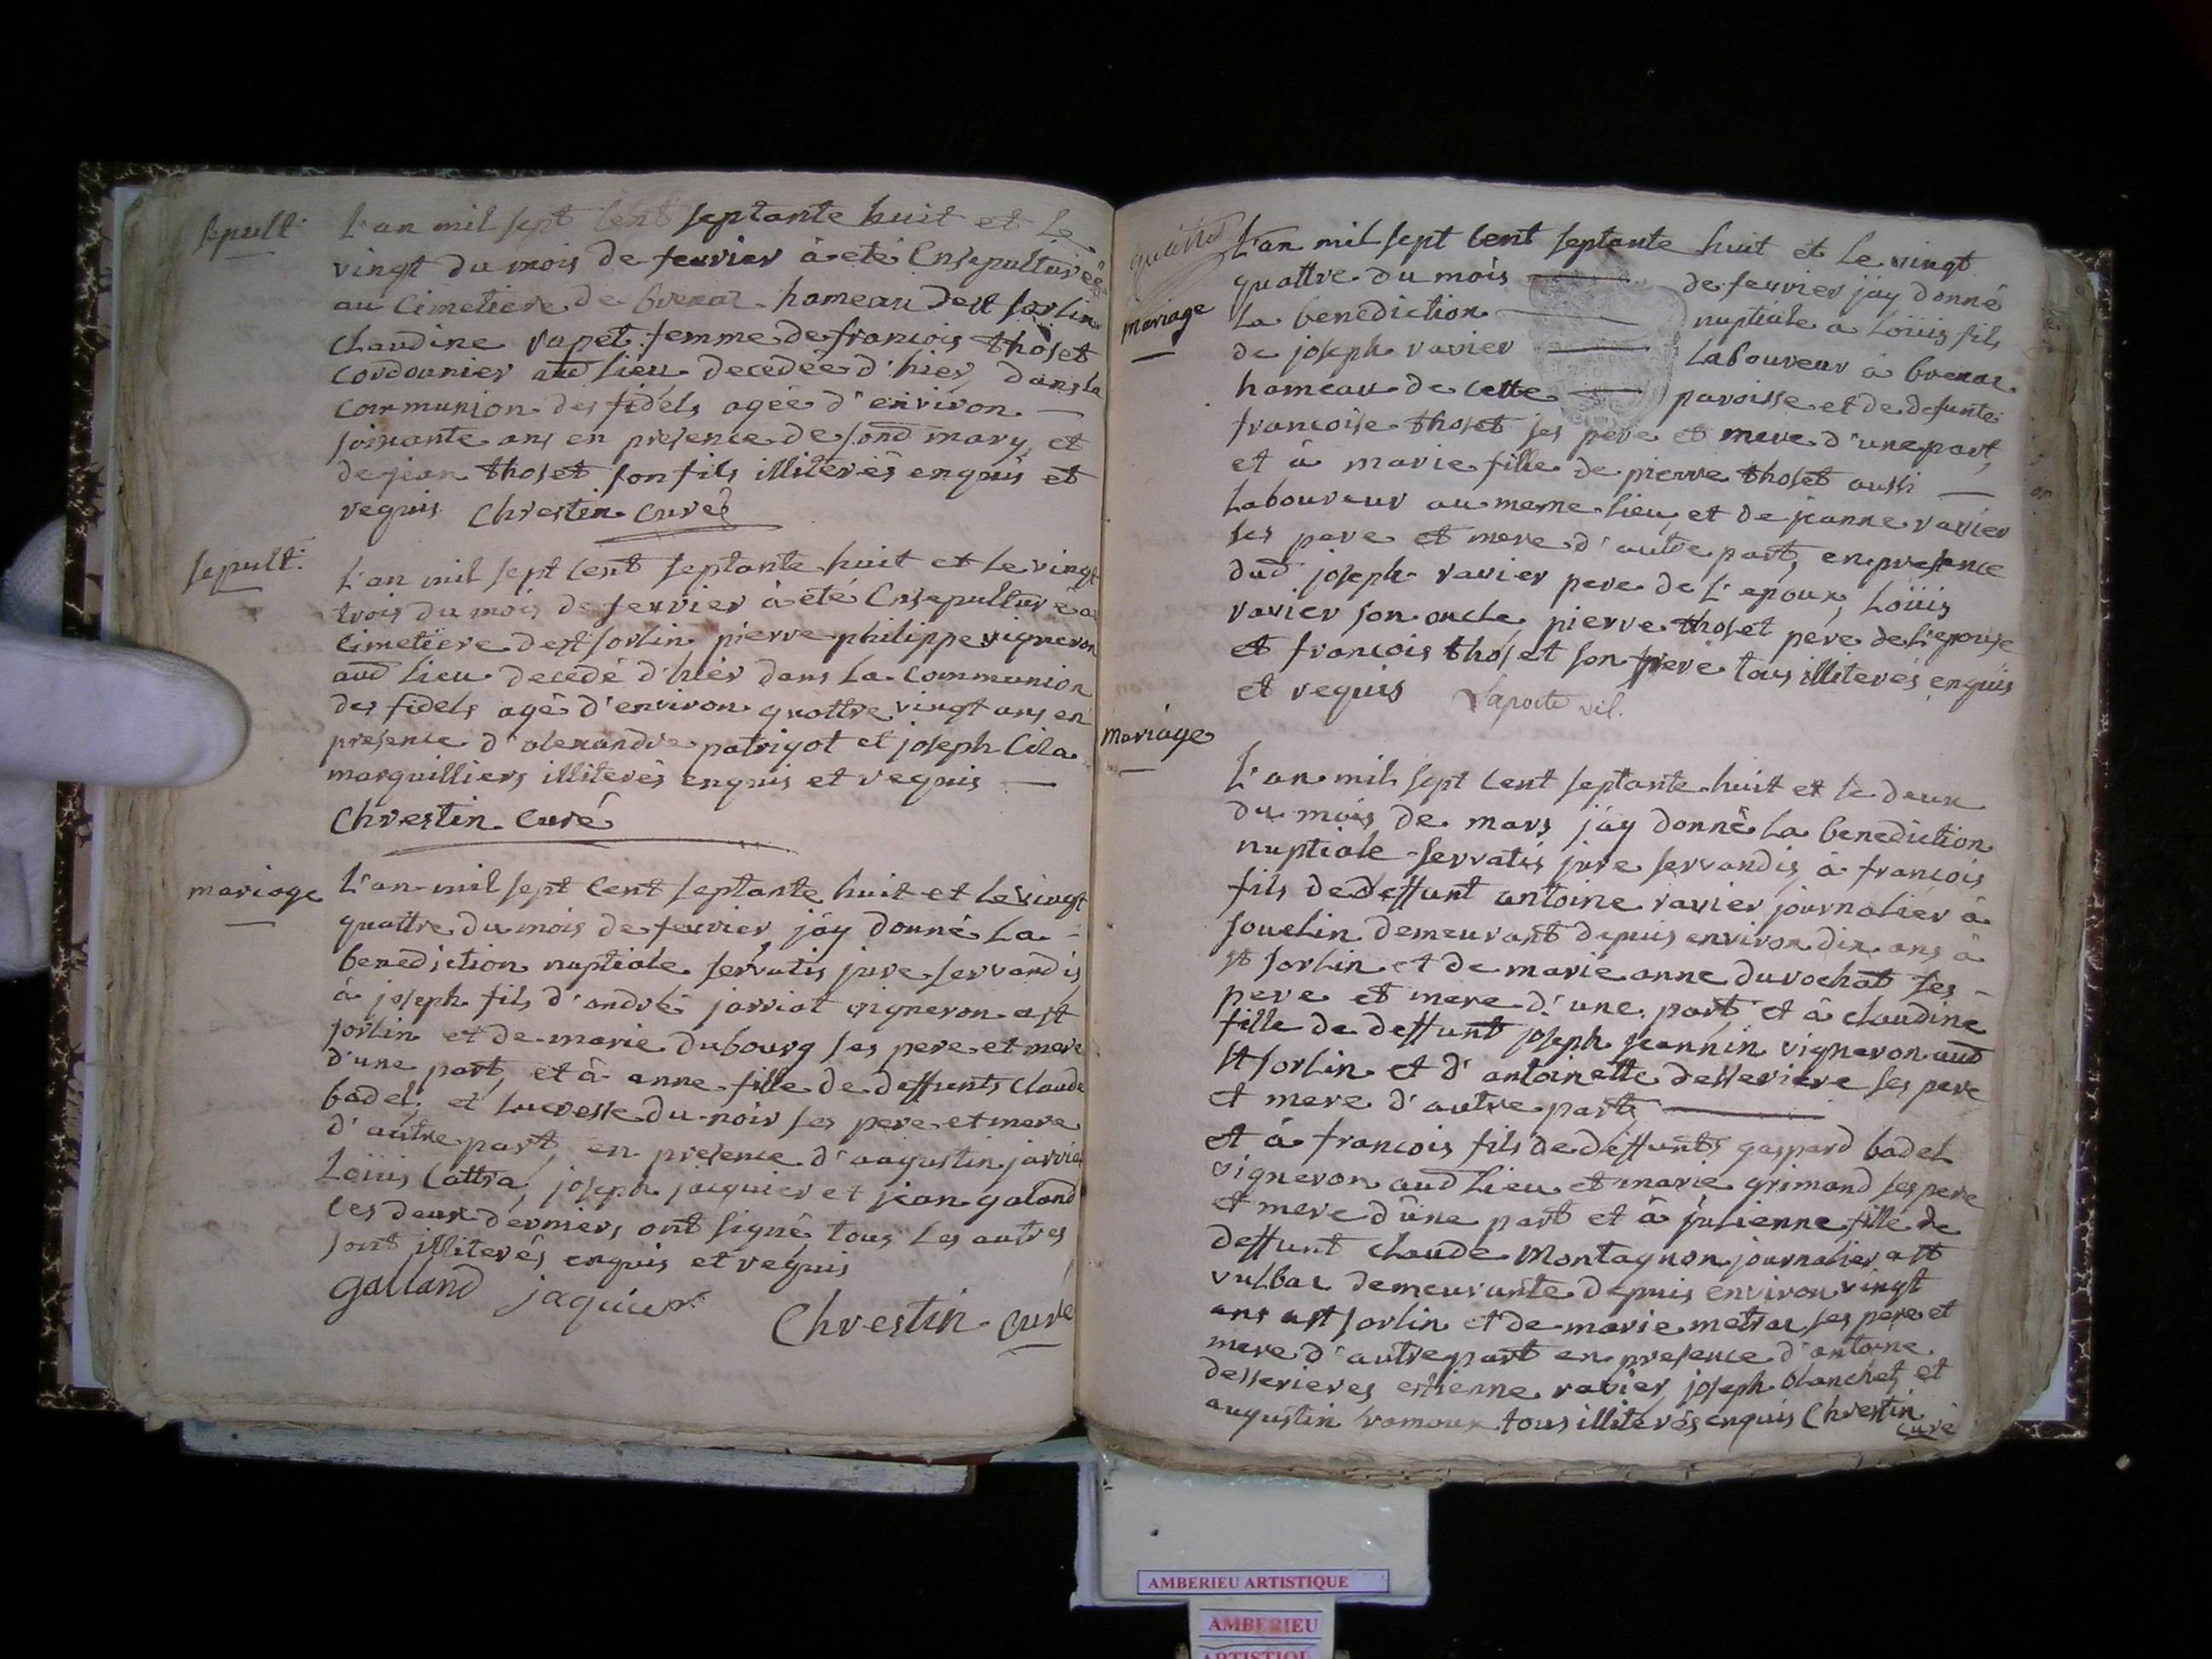 sepult:
L'an mil sept cent septante huit et le
vingt du mois de feuvier à eté Ensepulturéé
au Cimetiere de brenaz hameau de st sorlin
Claudine rapet femme de francois thoset
cordounier aud lieu decedéé d'hier, dans la
Communion des fidels agéé d'environ
soixante ans en presence de sond mary et
de jean thoset son fils illiterés enquis et
requis Chrestin Curé
sepult:
L'an mil sept cent septante huit et le vingt
trois du mois de feuvier à eté Ensepulturé a
Cimetiere de st sorlin pierre philippe vigneron
aud lieu decedé d'hier dans la Communion
des fidels agé d'environ quattre vingt ans en
presence d'alexandre patrigot et joseph Cila
marguilliers illiterés enquis et requis
Chrestin Curé
mariage
L'an mil sept cent septante huit et le vingt
quattre du mois de feuvier jáy donné La
benediction nuptiale servatis jure servandis
à joseph fils d'andré jarriat vigneron a st
sorlin et de marie dubourg ses pere et mere
d'une part, et à anne fille de deffunts Claude
badel, et Lucresse du noir ses pere et mere
d'autre part, en presence d'augustin jarria
Loüis Cattra, joseph jacquier et jean galand
ces deux derniers ont signé tous les autres
sont illiterés enquis et requis
galland jaquier
Chrestin Curé
quattre
mariage
L'an mil sept cent septante huit et le vingt
quattre du mois de feuvier jáy donné
La benediction nuptiale a Loüis fils
de joseph ravier Laboureur à brenaz
hameau de cette paroisse et de defunte
francoise thoset ses pere et mere d'une part,
et à marie fille de pierre thoset aussi
Laboureur au meme lieu et de jeanne ravier
ses pere et mere d'autre part, en presence
dud joseph ravier pere de L'epoux, Loüis
ravier son oncle, pierre thoset pere de L'epouse
et francois thoset son frere tous illiterés enquis
et requis Laporte vil.
mariage
L'an mil sept cent septante huit et le deux
du mois de mars jáy donné La benediction
nuptiale servatis jure servandis, à francois
fils de deffunt antoine ravier journalier à
souclin demeurant depuis environ dix ans à
st sorlin et de marie anne durochat ses
pere et mere d'une part et à claudine
fille de deffunt joseph jeannin vigneron aud
st sorlin et d'antoinette desseriere ses pere
et mere d'autre part,
et à francois fils de deffunts gaspard badel
vigneron aud Lieu et marie grimand ses pere
et mere d'une part et à julienne fille de
deffunt claude Montagnon journalier a st
vulbaz demeurante depuis environ vingt
ans a st sorlin et de marie metraz ses pere et
mere d'autre part en presence d'antoine
desserieres estienne ravier, joseph blanchet et
augustin ramoux tous illiterés enquis Chrestin
curé
AMBERIEU ARTISTIQUE
AMBERIEU
ARTISTIQU